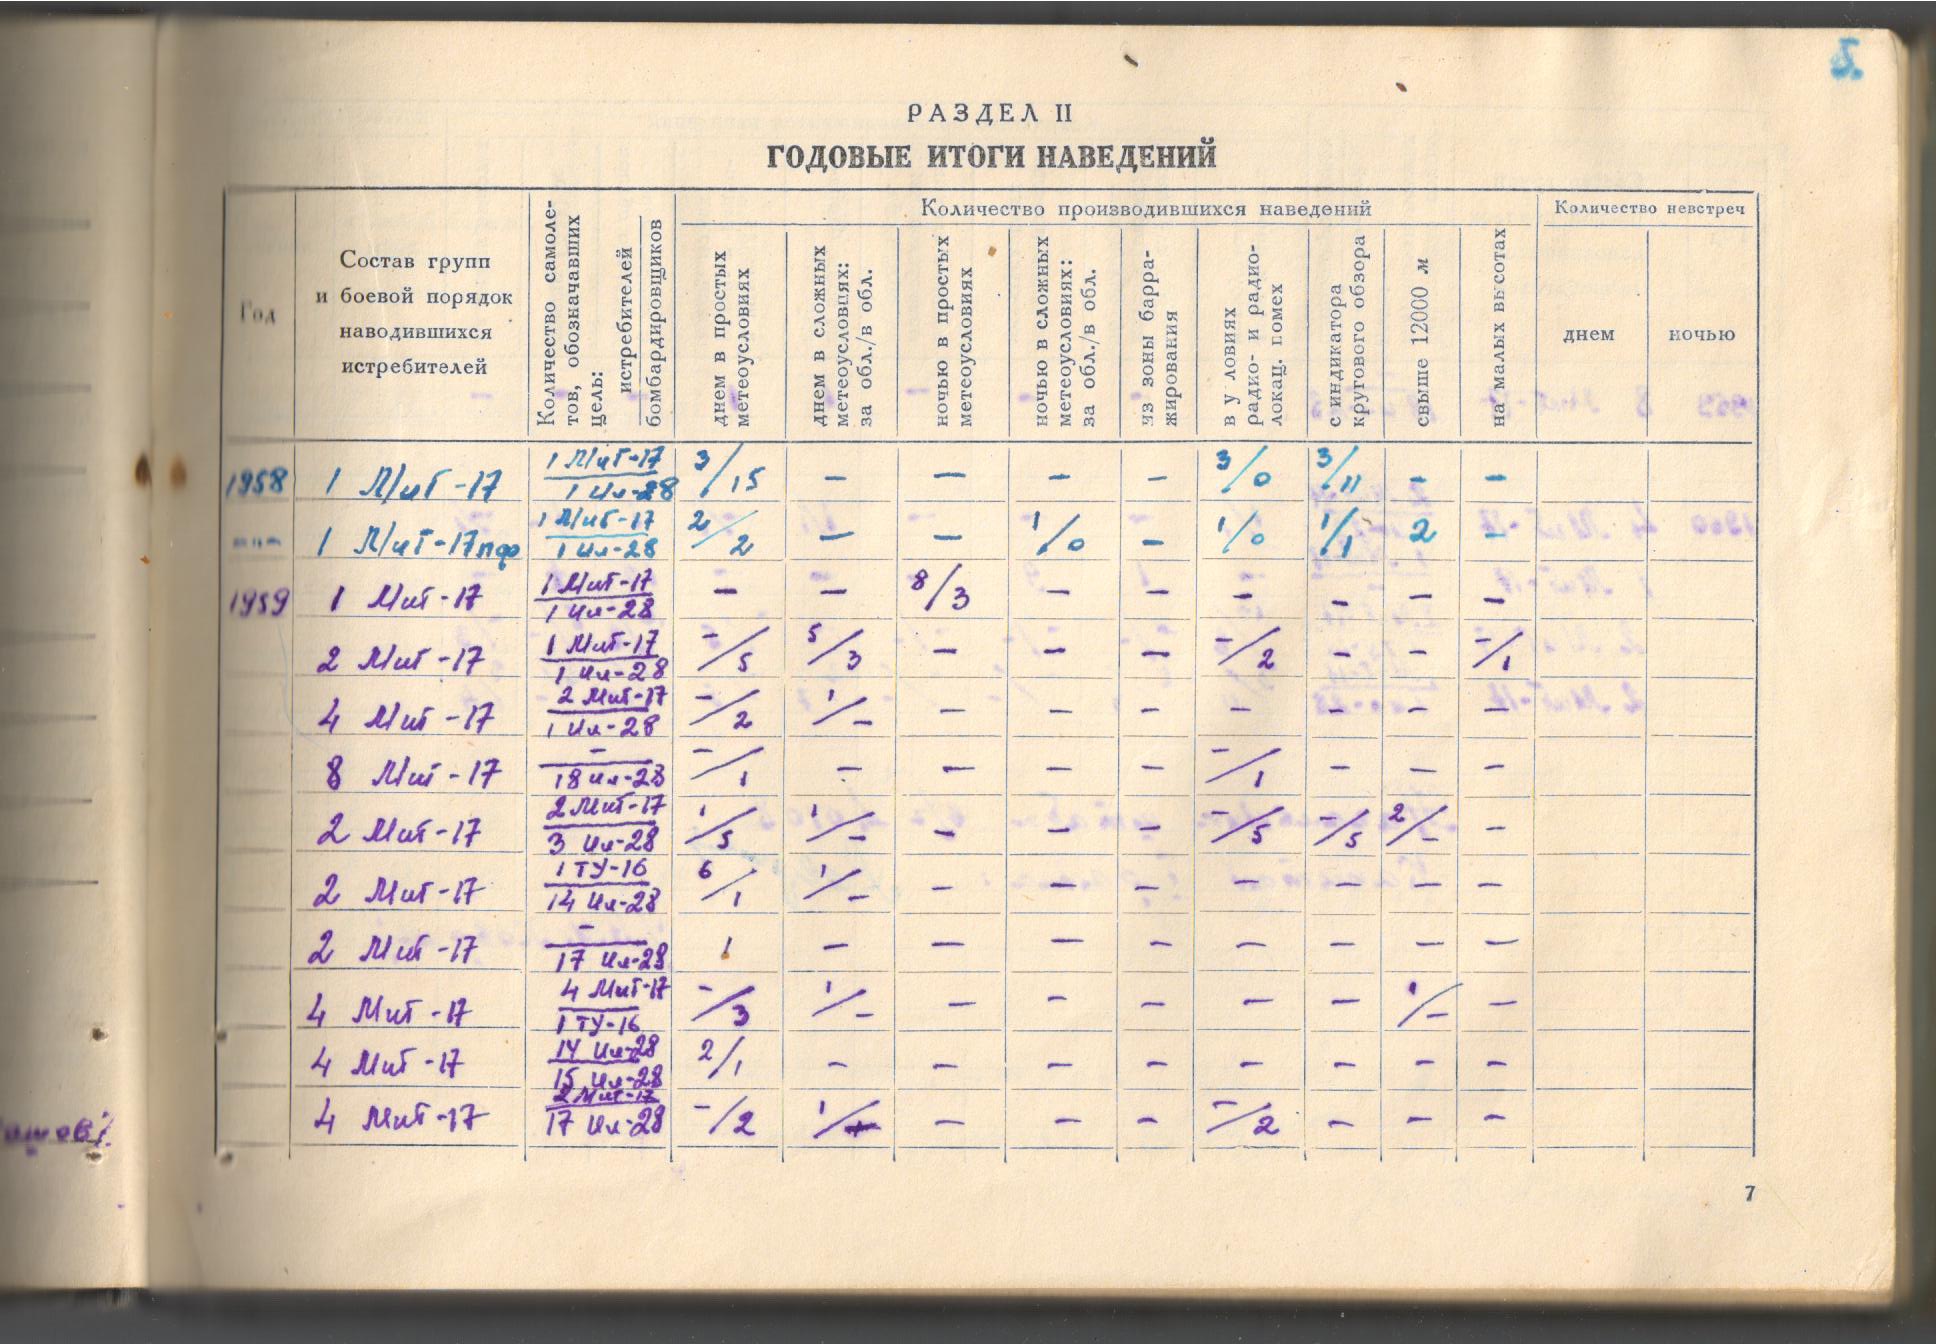 5.
РАЗДЕЛ II
ГОДОВЫЕ ИТОГИ НАВЕДЕНИЙ
Год
Состав групп
и боевой порядок
наводившихся
истребителей
Количество самоле-
тов, обозначавших
цель:
истребителей
бомбардировщиков
Количество производившихся наведений
днем в простых
метеоусловиях
днем в сложных
метеоусловиях:
за обл./в обл.
ночью в простых
метеоусловиях
ночью в сложных
метеоусловиях:
за обл./в обл.
из зоны барра-
жирования
в у ловиях
радио- и радио-
локац. помех
с индикатора
кругового обзора
свыше 12000 м
на малых высотах
Количество невстреч
днем
ночью
1958 1 МиГ-17 1 МиГ-17/1 Ил-28 3/15 – – – – 3/0 3/11 – –
–"– 1 МиГ-17пф 1 МиГ-17/1 Ил-28 2/2 – – 1/0 – 1/0 1/1 2 –
1959 1 МиГ-17 1 МиГ-17/1 Ил-28 – – 8/3 – – – – – –
2 МиГ-17 1 МиГ-17/1 Ил-28 –/5 5/3 – – – –/2 – – –/1
4 МиГ-17 2 МиГ-17/1 Ил-28 –/2 1/– – – – – – – –
8 МиГ-17 –/18 Ил-28 –/1 – – – – –/1 – – –
2 МиГ-17 2 МиГ-17/3 Ил-28 1/5 1/– – – – –/5 –/5 2/– –
2 МиГ-17 1 ТУ-16/14 Ил-28 6/1 1/– – – – – – – –
2 МиГ-17 –/17 Ил-28 1 – – – – – – – –
4 МиГ-17 4 МиГ-17/1 ТУ-16 –/3 1/– – – – – – 1/– –
4 МиГ-17 14 Ил-28/15 Ил-28 2/1 – – – – – – – –
4 МиГ-17 2 МиГ-17/17 Ил-28 –/2 1/– – – – –/2 – – –
7